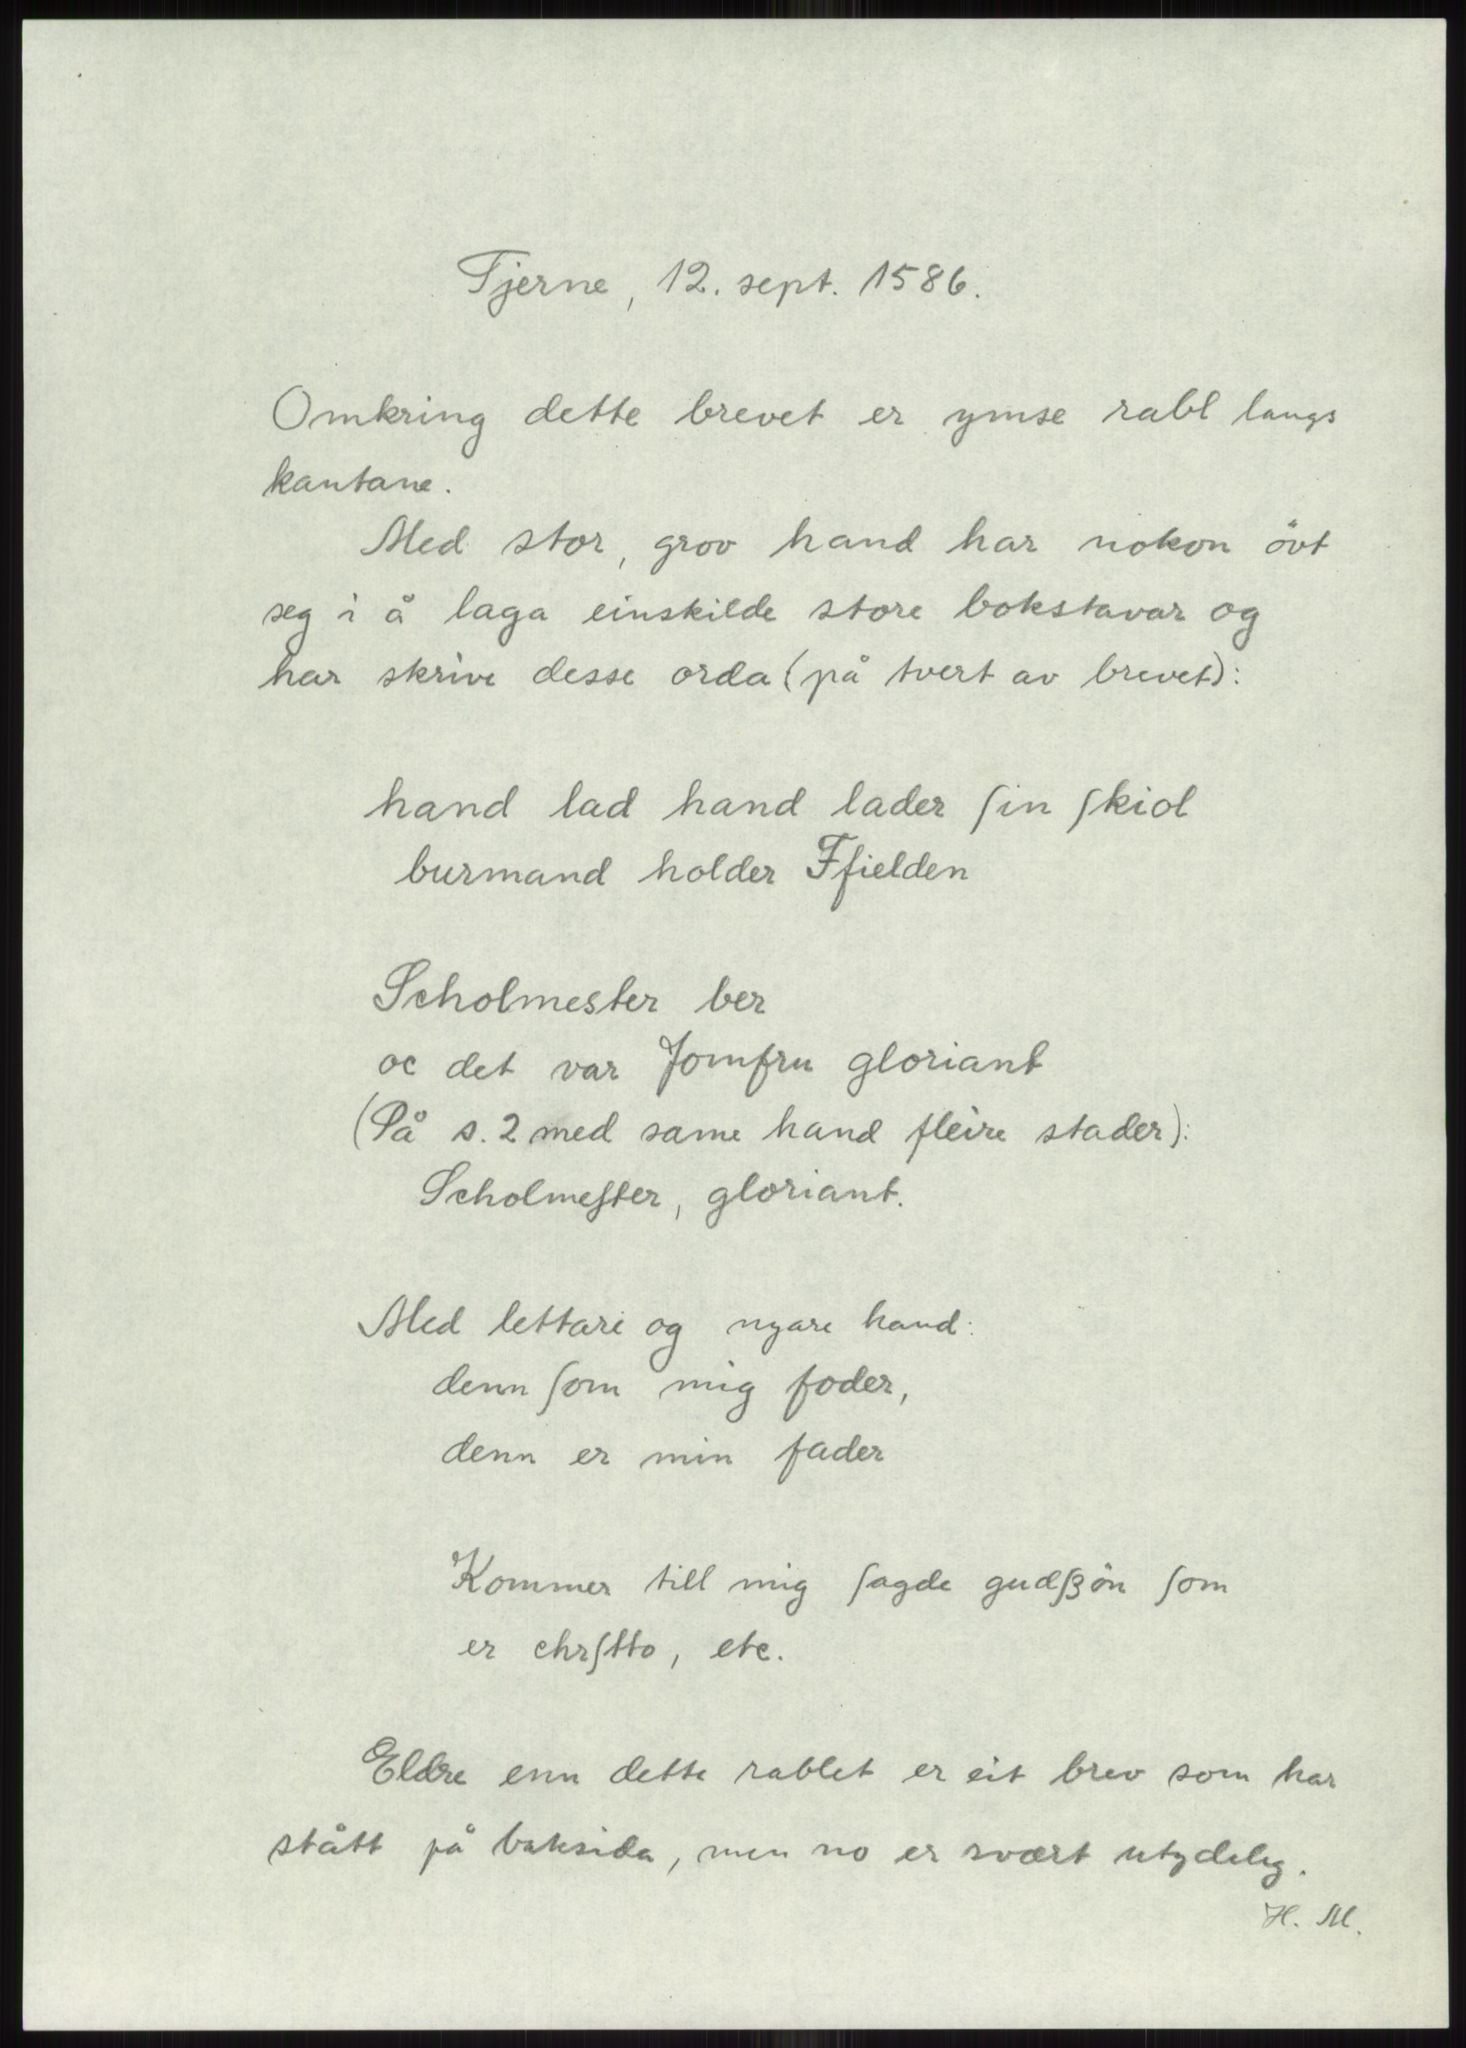 Tjerne, 12. sept. 1586.
Omkring dette brevet er ymse rabl langs
kantane.
Med stor, grov hand har nokon övt
seg i å laga einskilde store bokstavar og
har skrive desse orda (på tvert av brevet):
hand lad hand lader ſin ſkiol
burmand holder Ffielden
Scholmester ber
oc det var Jomfru gloriant
(På s. 2 med same hand fleire stader):
Scholmeſter, gloriant.
Med lettare og nyare hand:
denn ſom mig foder,
denn er min fader
Kommer till mig ſagde gudſʒön ſom
er chrſtto, etc.
Eldre enn dette rablet er eit brev som har
stått på baksida, men no er svært utydeleg.
H. M.